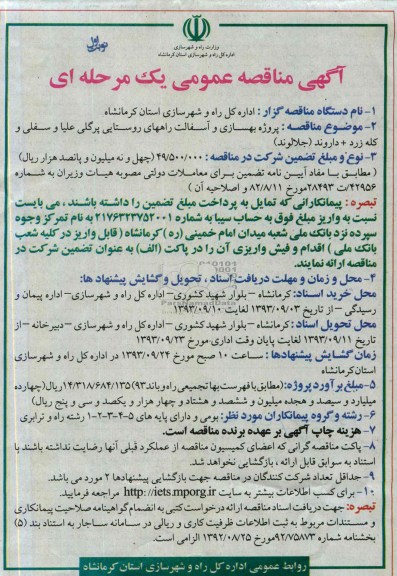 نوبت اول
وزارت راه و شهرسازی
اداره کل راه و شهرسازی استان کرمانشاه
آگهی مناقصه عمومی یک مرحله ای
۱- نام دستگاه مناقصه گزار : اداره کل راه و شهرسازی استان کرمانشاه
۲- موضوع مناقصه : پروژه بهسازی و آسفالت راههای روستایی پرگلی علیا و سفلی و
کله زرد + داروند (جلالوند)
۳- نوع و مبلغ تضمین شرکت در مناقصه : ۴۹/۵۰۰/۰۰۰ (چهل و نه میلیون و پانصد هزار ریال)
( مطابق با مفاد آیین نامه تضمین برای معاملات دولتی مصوبه هیات وزیران به شماره
۴۲۹۵۶/ت ۲۸۴۹۳ مورخ ۸۲/۸/۱۱ و اصلاحیه آن )
تبصره : پیمانکارانی که تمایل به پرداخت مبلغ تضمین را داشته باشند ، می بایست
نسبت به واریز مبلغ فوق به حساب سیبا به شماره ۲۱۷۶۳۲۳۷۵۲۰۰۱ به نام تمرکز وجوه
سپرده نزد بانک ملی شعبه میدان امام خمینی (ره) کرمانشاه ( قابل واریز در کلیه شعب
بانک ملی ) اقدام و فیش واریزی آن را در پاکت (الف) به عنوان تضمین شرکت در
مناقصه ارائه نمایند.
۴- محل و زمان و مهلت دریافت اسناد ، تحویل و گشایش پیشنهاد ها:
محل خرید اسناد: کرمانشاه – بلوار شهید کشوری – اداره کل راه و شهرسازی – اداره پیمان و
رسیدگی – از تاریخ ۱۳۹۳/۰۹/۰۳ لغایت ۱۳۹۳/۰۹/۱۰
محل تحویل اسناد : کرمانشاه – بلوار شهید کشوری – اداره کل راه و شهرسازی – دبیرخانه – از
تاریخ ۱۳۹۳/۰۹/۱۱ لغایت پایان وقت اداری مورخ ۱۳۹۳/۰۹/۲۳
زمان گشایش پیشنهادها : ساعت ۱۰ صبح مورخ ۱۳۹۳/۰۹/۲۴ در اداره کل راه و شهرسازی
استان کرمانشاه
۵- مبلغ برآورد پروژه: (مطابق با فهرست بها تجمیعی راه و باند ۹۳) ۱۴/۳۱۸/۶۸۴/۱۳۵ ریال (چهارده
میلیارد و سیصد و هجده میلیون و ششصد و هشتاد و چهار هزار و یکصد و سی و پنج ریال)
۶- رشته و گروه پیمانکاران مورد نظر: بومی و دارای پایه های ۵-۴-۳-۲-۱ رشته راه و ترابری
۷- هزینه چاپ آگهی بر عهده برنده مناقصه است.
۸- پاکت مناقصه گرانی که اعضای کمیسیون مناقصه از عملکرد قبلی آنها رضایت نداشته باشند با
استناد به سوابق قابل ارائه ، بازگشایی نخواهد شد.
۹- حداقل تعداد شرکت کنندگان در مناقصه جهت بازگشایی پیشنهادها ۲ مورد می باشد.
۱۰- برای کسب اطلاعات بیشتر به سایت http://iets.mporg.ir مراجعه فرمایید.
تبصره: جهت دریافت اسناد مناقصه ارائه درخواست کتبی به انضمام گواهینامه صلاحیت پیمانکاری
و مستندات مربوط به ثبت اطلاعات ظرفیت کاری و ریالی در سامانه ساجار به استناد بند (۵)
بخشنامه شماره ۹۲/۷۵۸۷۳ مورخ ۱۳۹۲/۰۸/۲۵ الزامی است.
روابط عمومی اداره کل راه و شهرسازی استان کرمانشاه